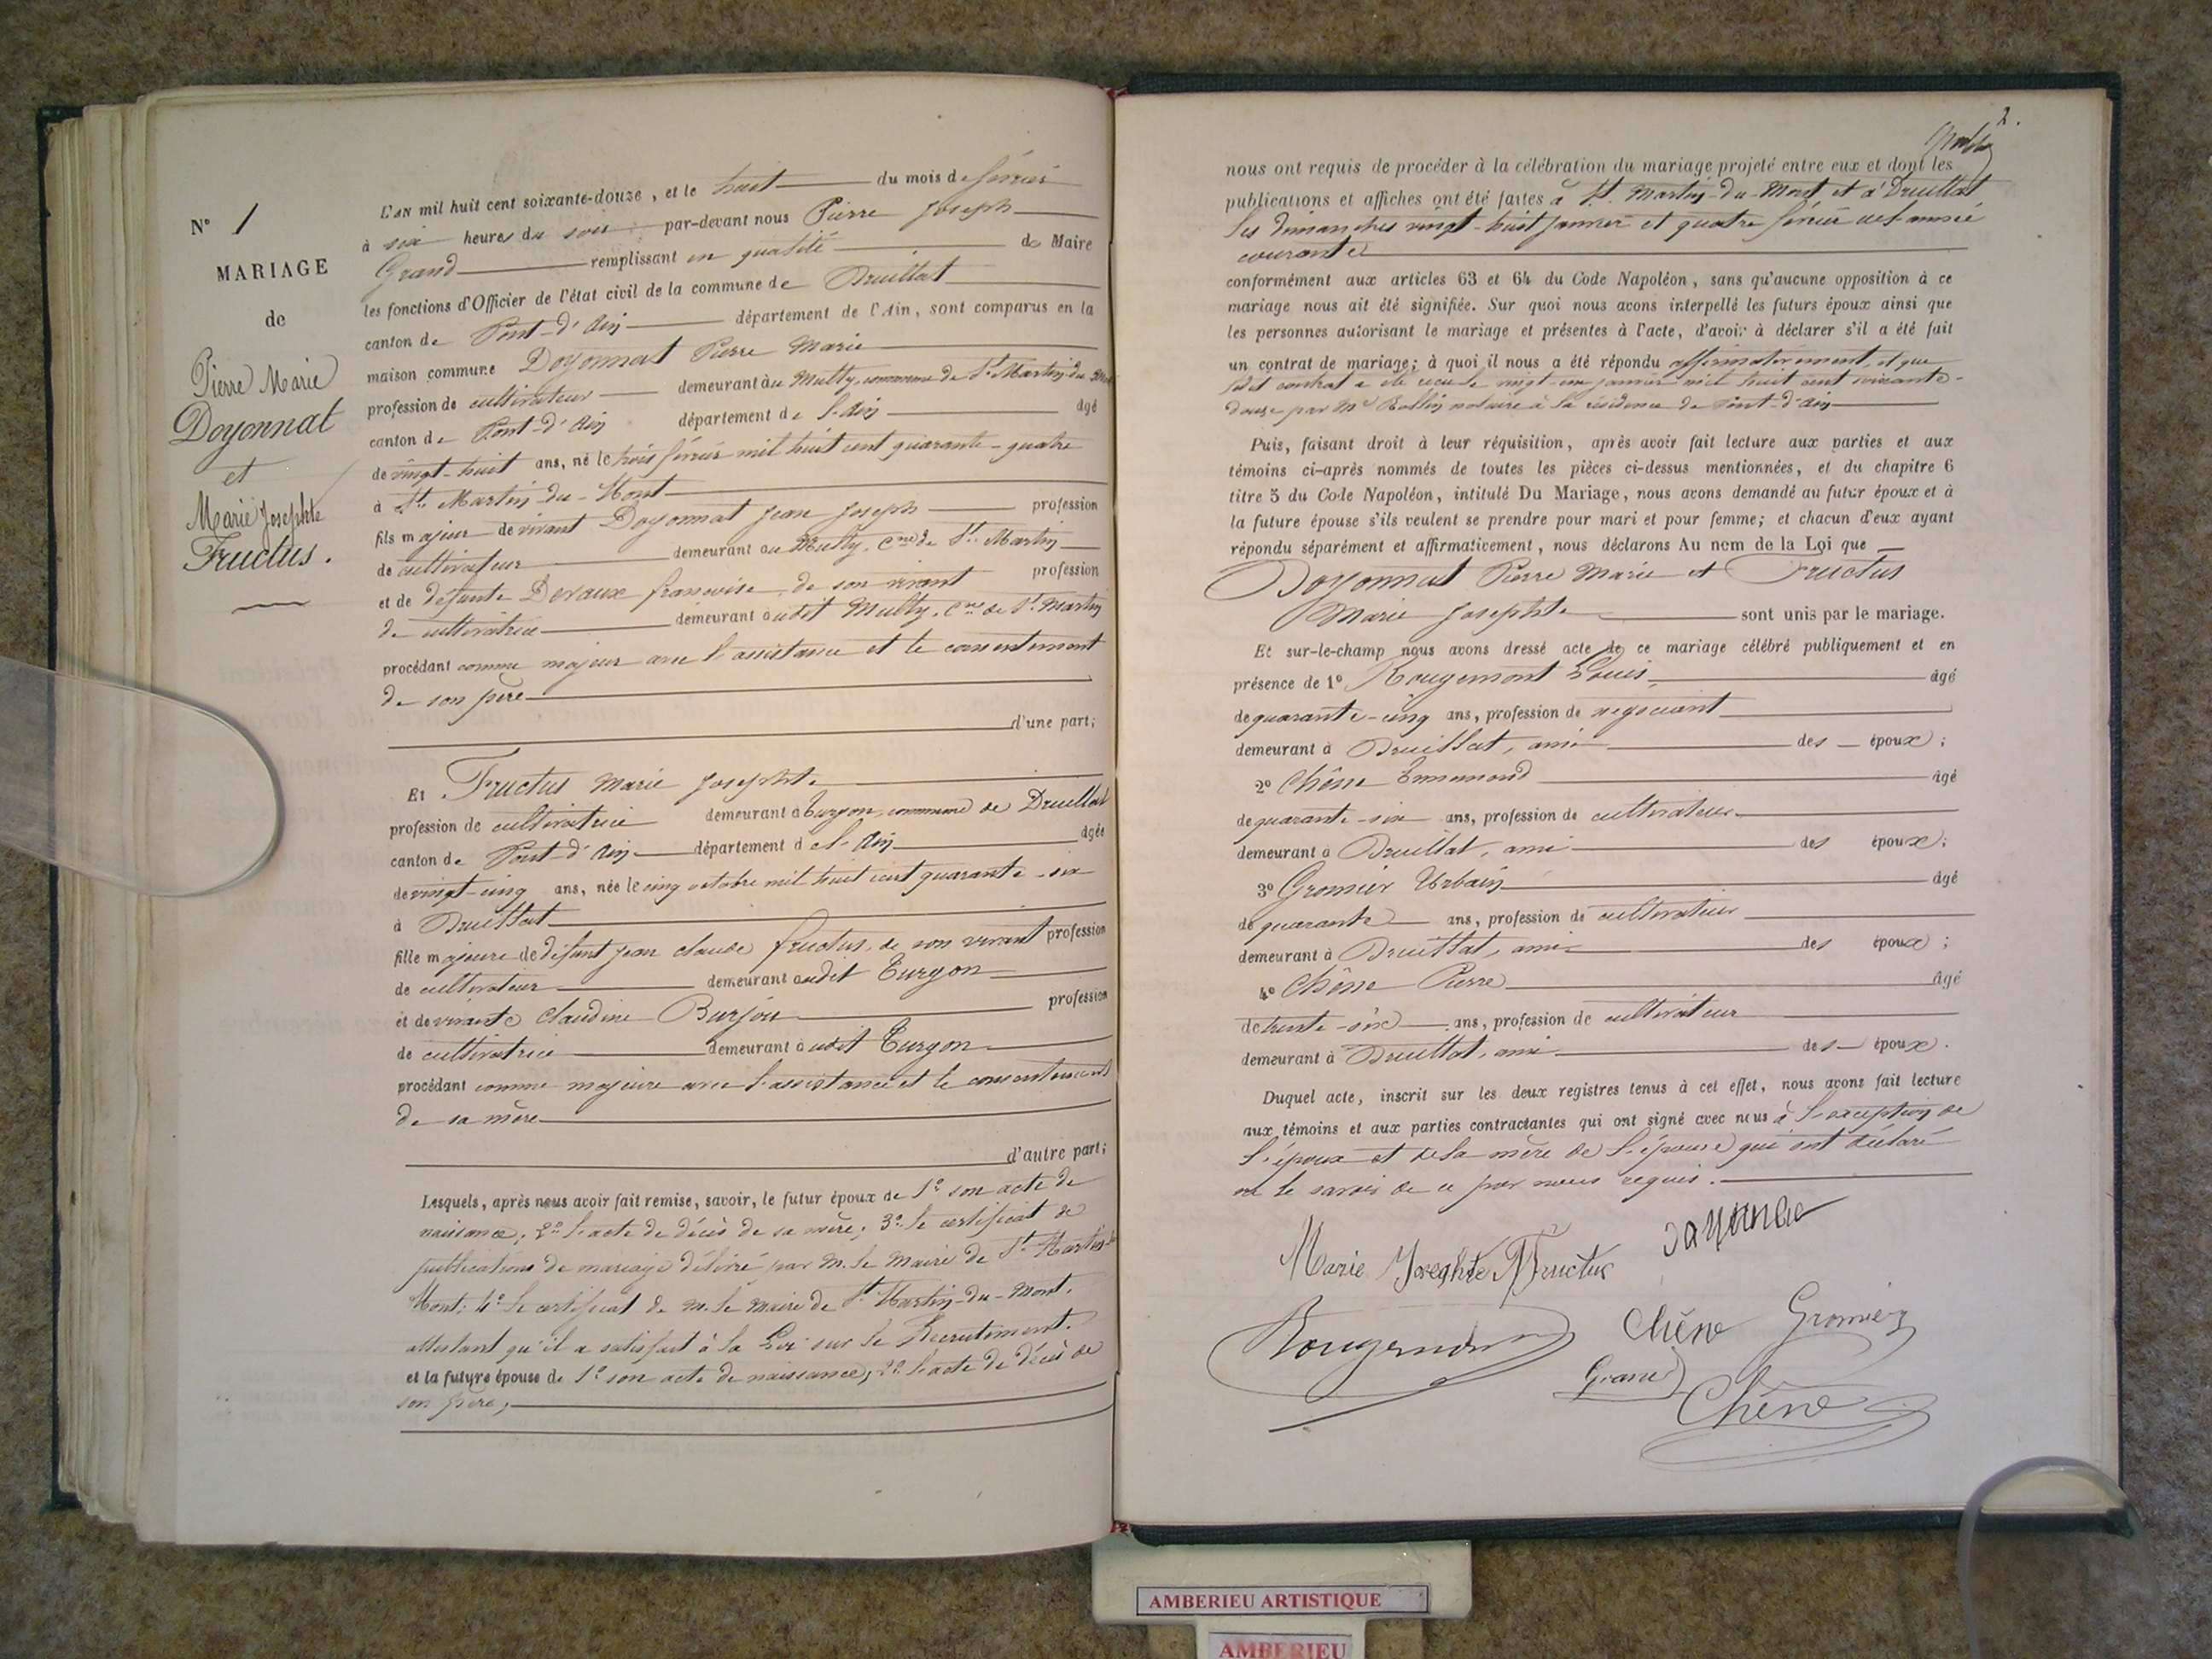 N° 1
MARIAGE
de
Pierre Marie
Doyonnat
et
Marie Josephte
Fructus.
L'AN mil huit cent soixante-douze, et le huit du mois de février
à six heures du soir par-devant nous Pierre Joseph
Grand remplissant en qualité de Maire
les fonctions d'Officier de l'état civil de la commune de Druillat
canton de Pont-d'Ain département de l'Ain, sont comparus en la
maison commune Doyonnat Pierre Marie
profession de cultivateur demeurant au Multy, commune de St. Martin du Mont
canton de Pont-d'Ain département de l'Ain âgé
de vingt-huit ans, né le trois février mil huit cent quarante-quatre
à St. Martin-du-Mont
fils majeur de vivant Doyonnat Jean Joseph profession
de cultivateur demeurant au Multy, Cne de St. Martin
et de défunte Devaux françoise, de son vivant profession
de cultivatrice demeurant audit Multy, Cne de St. Martin
procédant comme majeur avec l'assistance et le consentement
de son père
d'une part;
Et Fructus Marie Josephte
profession de cultivatrice demeurant à Turgon, commune de Druillat
canton de Pont-d'Ain département de l'Ain âgée
de vingt-cinq ans, née le cinq octobre mil huit cent quarante-six
à Druillat
fille majeure de défunt Jean Claude fructus, de son vivant profession
de cultivateur demeurant audit Turgon
et de vivante Claudine Burjou profession
de cultivatrice demeurant audit Turgon
procédant comme majeure avec l'assistance et le consentement
de sa mère
d'autre part;
Lesquels, après nous avoir fait remise, savoir, le futur époux de 1° son acte de
naissance; 2° l'acte de décès de sa mère; 3° le certificat de
publications de mariage délivré par M. le Maire de St. Martin-du
Mont; 4° le certificat de M. le Maire de St. Martin-du-Mont,
attestant qu'il a satisfait à la Loi sur le Recrutement.
et la future épouse de 1° son acte de naissance; 2° l'acte de décès de
son père;
2.
nous ont requis de procéder à la célébration du mariage projeté entre eux et dont les
publications et affiches ont été faites à St. Martin-du-Mont et à Druillat
les dimanches vingt-huit janvier et quatre février de l'année
courante
conformément aux articles 63 et 64 du Code Napoléon, sans qu'aucune opposition à ce
mariage nous ait été signifiée. Sur quoi nous avons interpellé les futurs époux ainsi que
les personnes autorisant le mariage et présentes à l'acte, d'avoir à déclarer s'il a été fait
un contrat de mariage; à quoi il nous a été répondu affirmativement, et que
ledit contrat a été reçu le vingt-un janvier mil huit cent soixante-
douze par Me Rollin notaire à la résidence de Pont-d'Ain
Puis, faisant droit à leur réquisition, après avoir fait lecture aux parties et aux
témoins ci-après nommés de toutes les pièces ci-dessus mentionnées, et du chapitre 6
titre 5 du Code Napoléon, intitulé Du Mariage, nous avons demandé au futur époux et à
la future épouse s'ils veulent se prendre pour mari et pour femme; et chacun d'eux ayant
répondu séparément et affirmativement, nous déclarons Au nom de la Loi que
Doyonnat Pierre Marie et Fructus
Marie Josephte sont unis par le mariage.
Et sur-le-champ nous avons dressé acte de ce mariage célébré publiquement et en
présence de 1° Rougemont Louis âgé
de quarante-cinq ans, profession de négociant
demeurant à Druillat, ami des époux;
2° Chêne Emmanuel âgé
de quarante-six ans, profession de cultivateur
demeurant à Druillat, ami des époux;
3° Gromier Urbain âgé
de quarante ans, profession de cultivateur
demeurant à Druillat, ami des époux;
4° Chêne Pierre âgé
de trente-six ans, profession de cultivateur
demeurant à Druillat, ami des époux.
Duquel acte, inscrit sur les deux registres tenus à cet effet, nous avons fait lecture
aux témoins et aux parties contractantes qui ont signé avec nous à l'exception de
l'époux et de la mère de l'épouse qui ont déclaré
ne le savoir de ce par nous requis.
Marie Josephte Fructus
Rougemont Chêne Gromier
Grand Chêne
AMBERIEU ARTISTIQUE
AMBERIEU